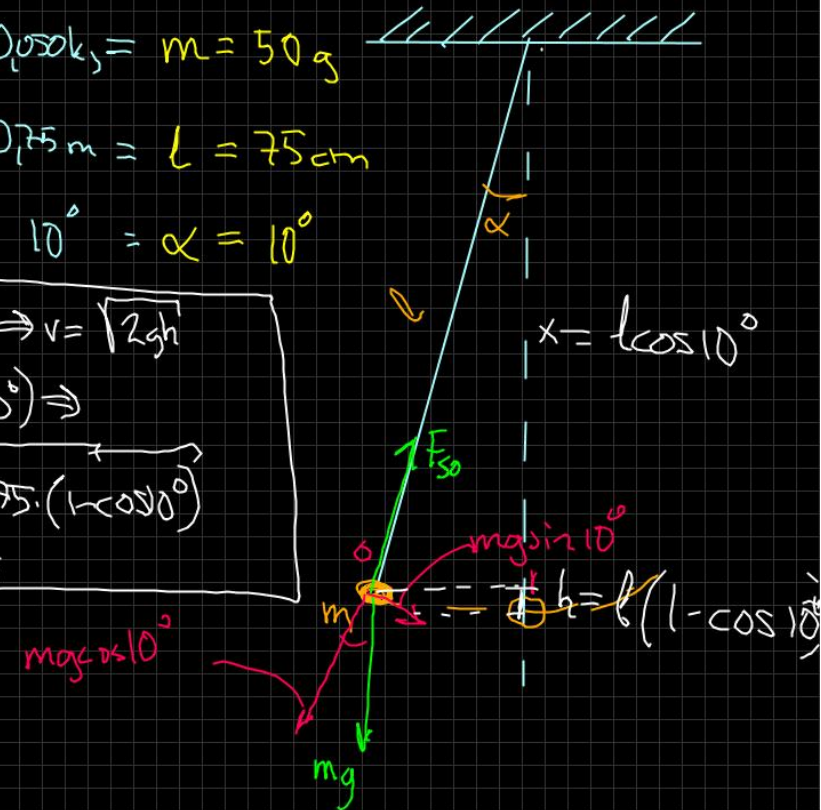 0,050kg = m = 50g
0,75m = l = 75cm
10° = α = 10°
α
⇒ v = √2gh
x = lcos10°
°) ⇒
F50
75·(1-cos10°)
0
mgsin10°
1
m
h = l(1-cos10°)
mgcos10°
mg